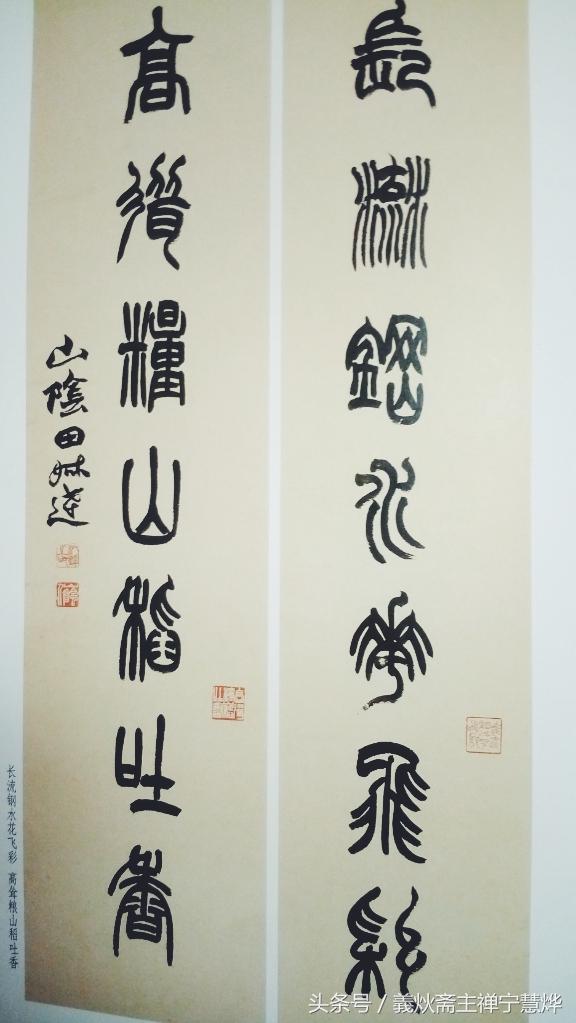 長流鋼水花飛彩
高聳糧山稻吐香
山陰田叔達
长流钢水花飞彩 高耸粮山稻吐香
头条号 / 義炏斋主禅宁慧烨